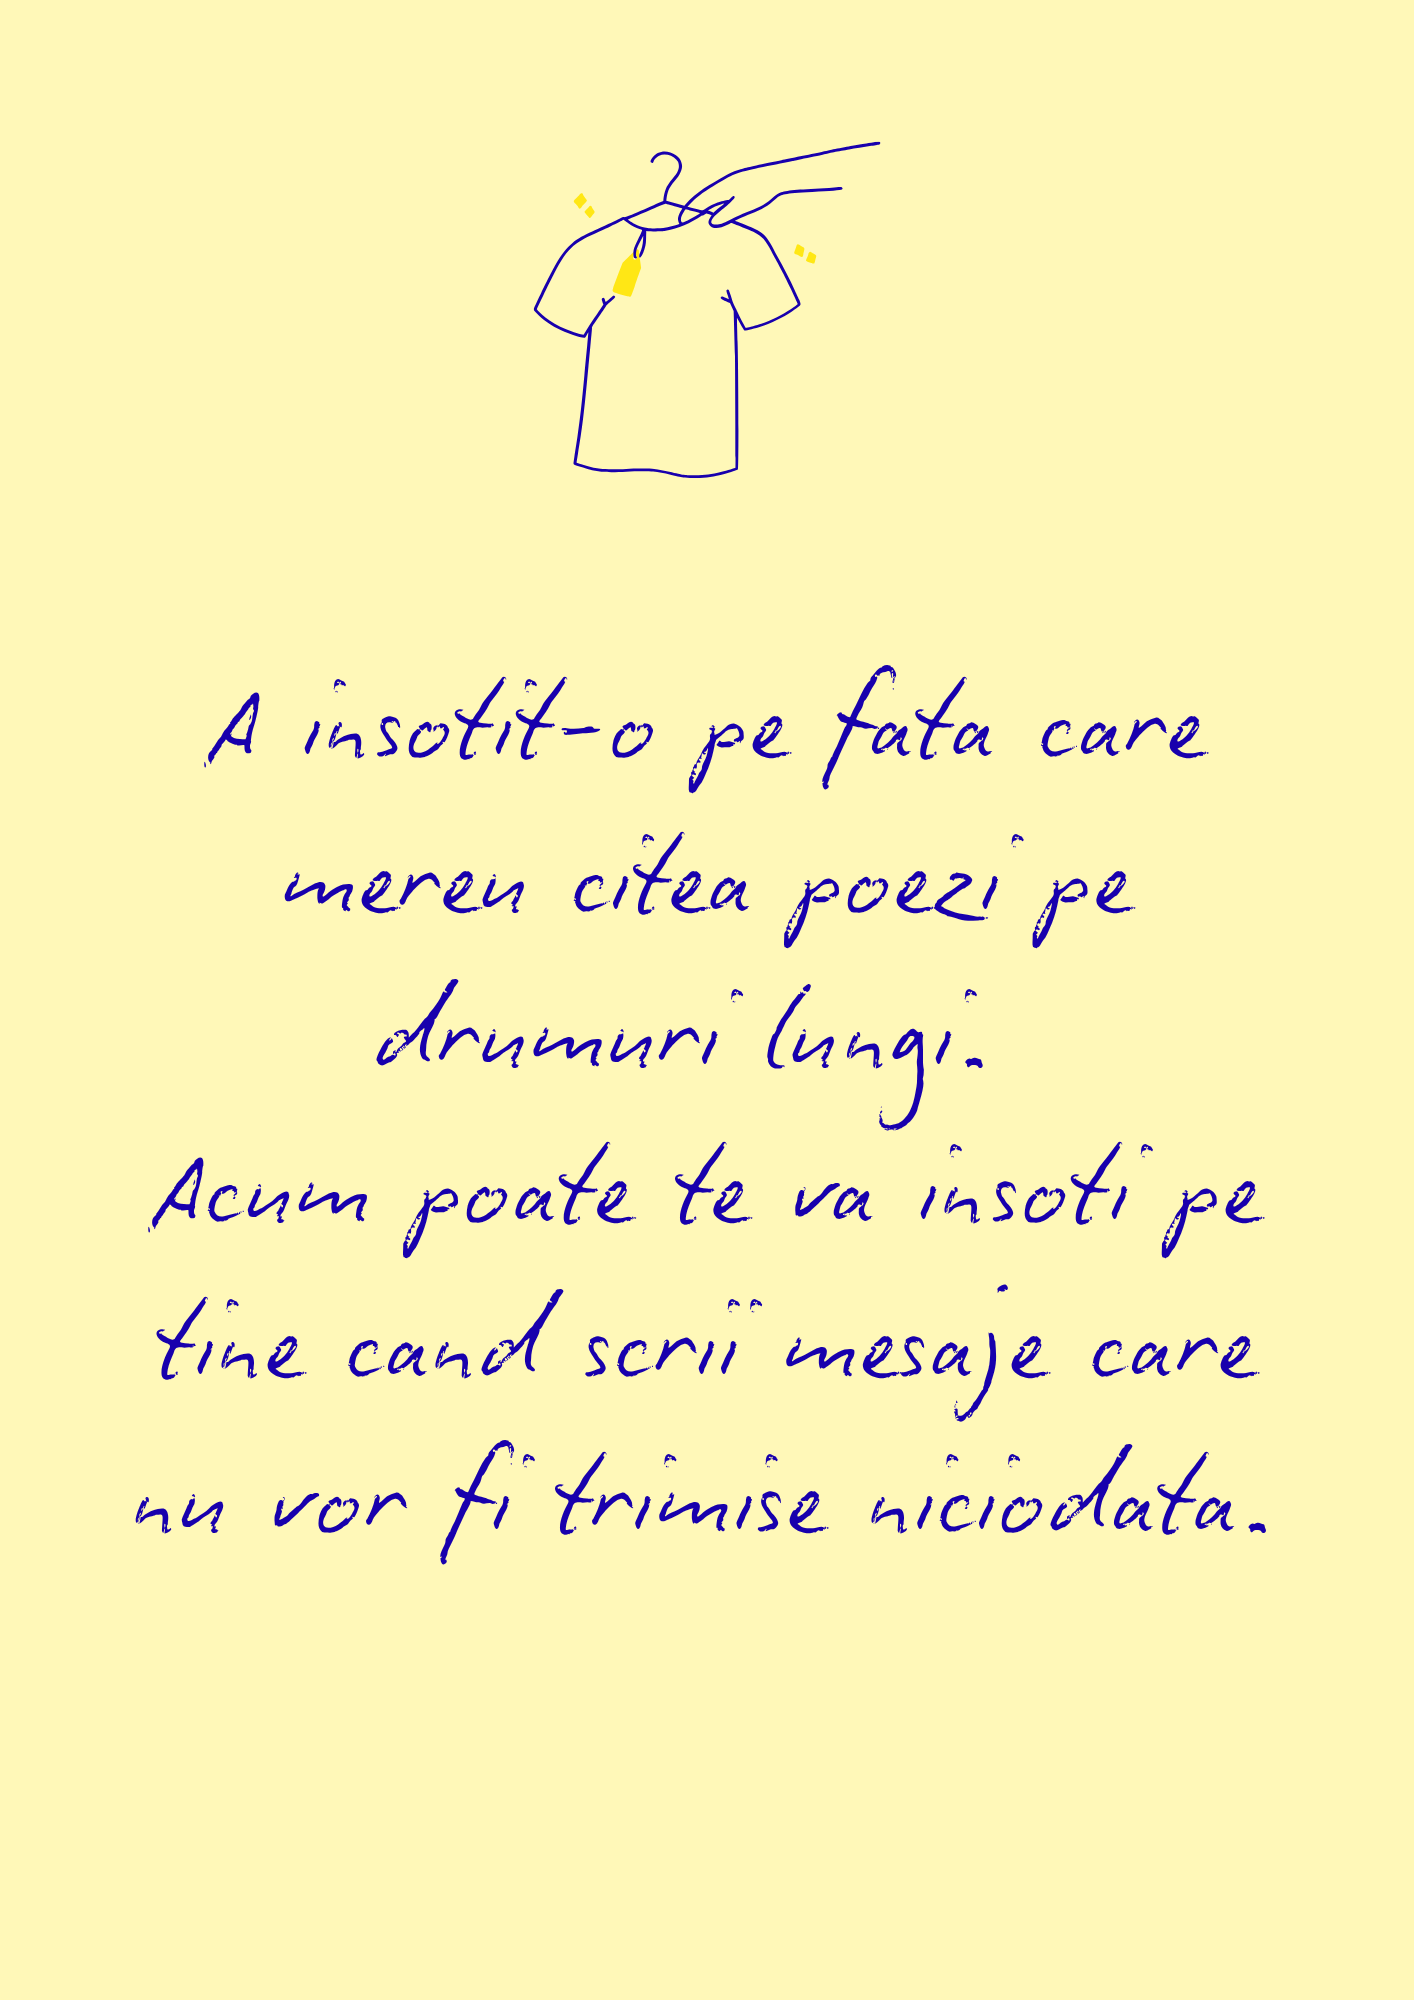 A insotit-o pe fata care
mereu citea poezi pe
drumuri lungi.
Acum poate te va insoti pe
tine cand scrii mesaje care
nu vor fi trimise niciodata.